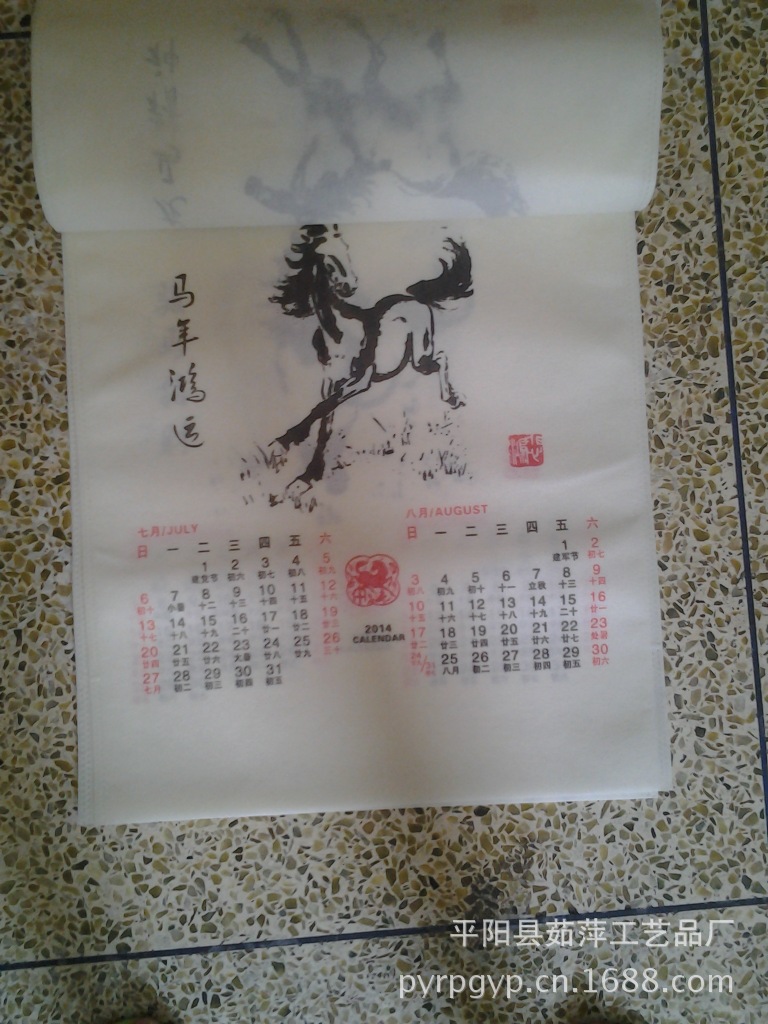 马年鸿运
七月/JULY
日 一 二 三 四 五 六
1 2 3 4 5
建党节 初六 初七 初八 初九
6 7 8 9 10 11 12
初十 小暑 十二 十三 十四 十五 十六
13 14 15 16 17 18 19
十七 十八 十九 二十 廿一 廿二 廿三
20 21 22 23 24 25 26
廿四 廿五 廿六 大暑 廿八 廿九 三十
27 28 29 30 31
七月 初二 初三 初四 初五
2014
CALENDAR
八月/AUGUST
日 一 二 三 四 五 六
1 2
建军节 初七
3 4 5 6 7 8 9
初八 初九 初十 十一 立秋 十三 十四
10 11 12 13 14 15 16
十五 十六 十七 十八 十九 二十 廿一
17 18 19 20 21 22 23
廿二 廿三 廿四 廿五 廿六 廿七 处暑
24/31 25 26 27 28 29 30
八月 初二 初三 初四 初五 初六
平阳县茹萍工艺品厂
pyrpgyp.cn.1688.com